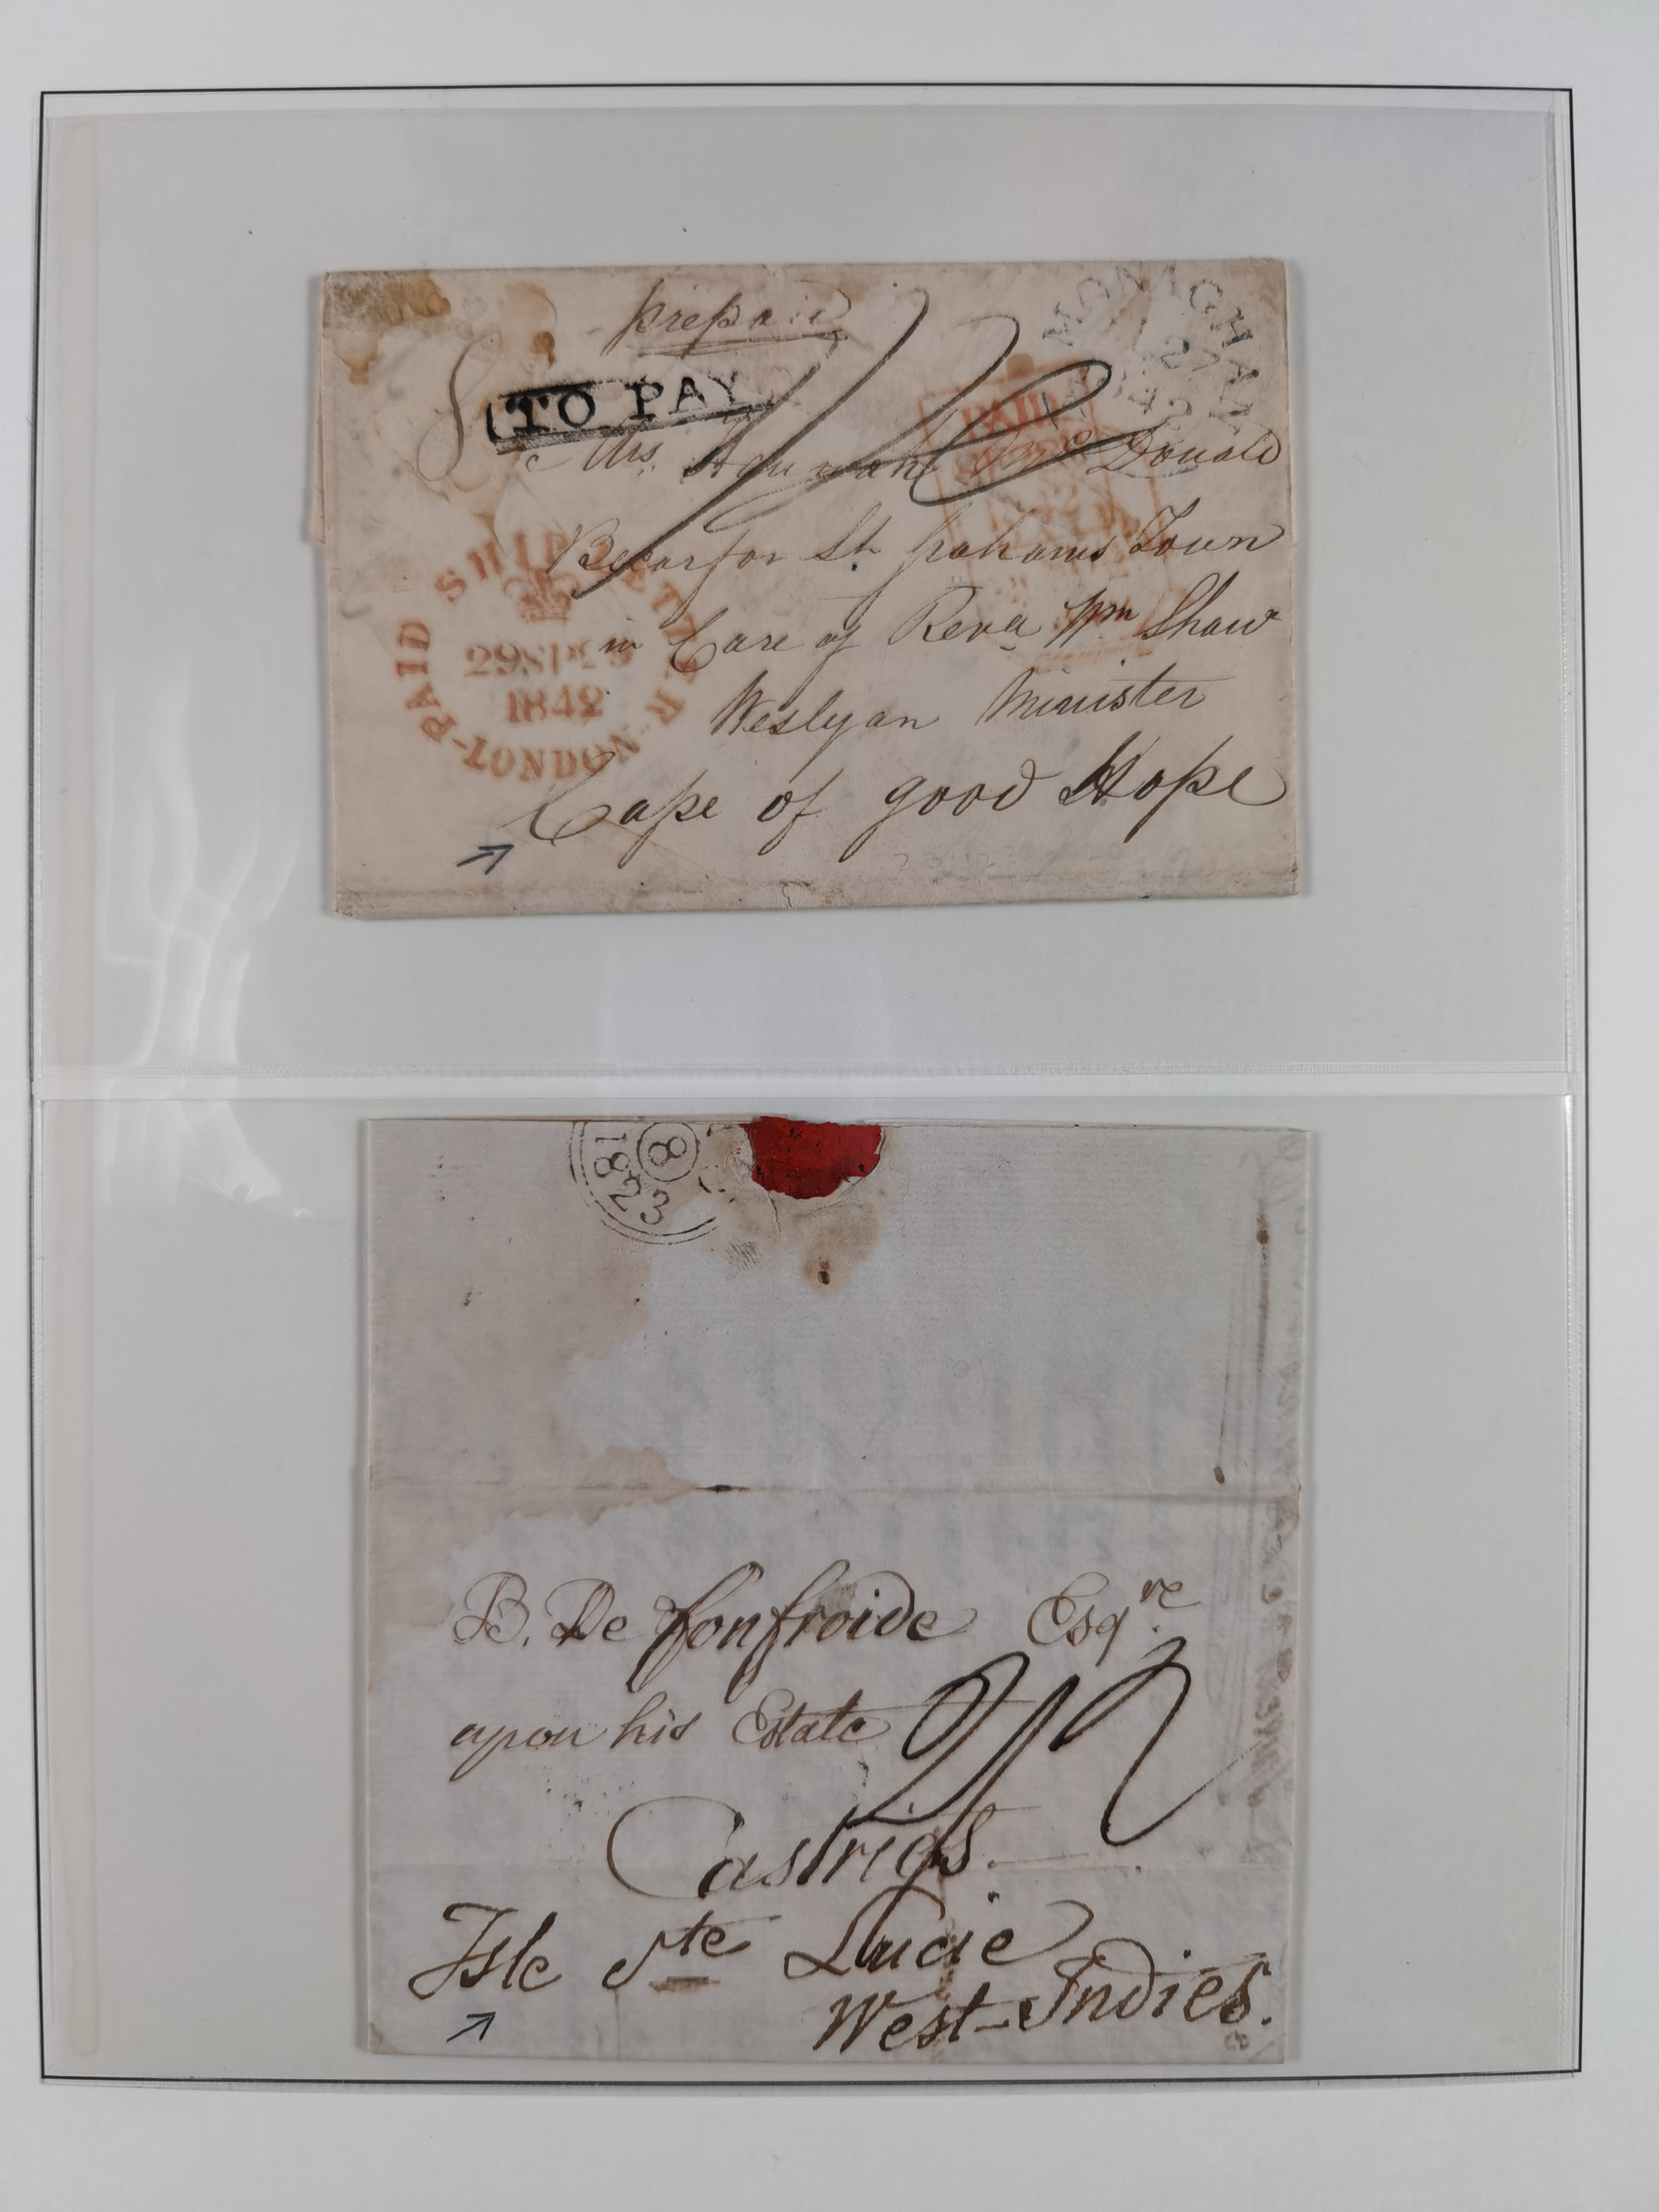 prepaid
TO PAY
MONAGHAN
27
PAID
Mrs. Donald
St. Grahams Town
in Care of Revd. Wm Shaw
Weslyan Minister
Cape of good Hope
PAID SHIP LETTER LONDON
29 SP 29
1842
8
1823
B. De Confroide Esqre.
upon his Estate
2/2
Castries.
Isle Ste Lucie
West-Indies.